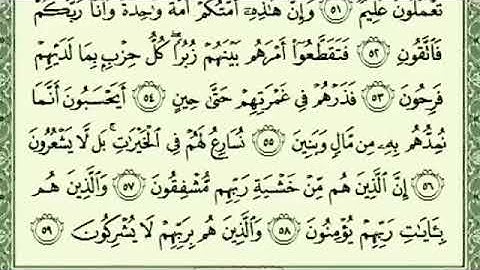 تَعْمَلُونَ عَلِيمٌ ٥١ وَإِنَّ هَٰذِهِۦٓ أُمَّتُكُمْ أُمَّةً وَٰحِدَةً وَأَنَا۠ رَبُّكُمْ
فَٱتَّقُونِ ٥٢ فَتَقَطَّعُوٓا۟ أَمْرَهُم بَيْنَهُمْ زُبُرًا ۖ كُلُّ حِزْبٍۭ بِمَا لَدَيْهِمْ
فَرِحُونَ ٥٣ فَذَرْهُمْ فِى غَمْرَتِهِمْ حَتَّىٰ حِينٍ ٥٤ أَيَحْسَبُونَ أَنَّمَا
نُمِدُّهُم بِهِۦ مِن مَّالٍ وَبَنِينَ ٥٥ نُسَارِعُ لَهُمْ فِى ٱلْخَيْرَٰتِ ۚ بَل لَّا يَشْعُرُونَ
٥٦ إِنَّ ٱلَّذِينَ هُم مِّنْ خَشْيَةِ رَبِّهِم مُّشْفِقُونَ ٥٧ وَٱلَّذِينَ هُم
بِـَٔايَٰتِ رَبِّهِمْ يُؤْمِنُونَ ٥٨ وَٱلَّذِينَ هُم بِرَبِّهِمْ لَا يُشْرِكُونَ ٥٩